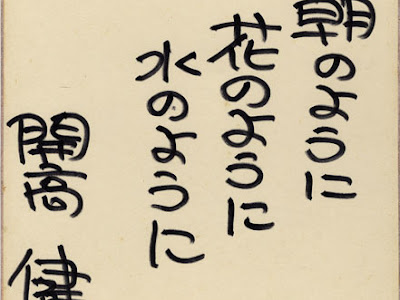 朝のように
花のように
水のように
開高健